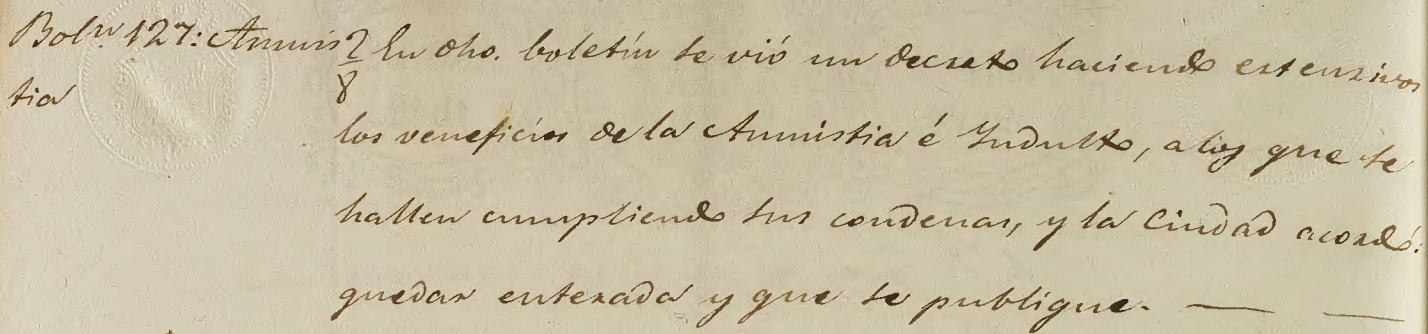 Bolⁿ. 127: Amnis
tia
2
8
En dho. boletín se vió un decreto haciendo extensivos
los veneficios de la Amnistia é Indulto, a los que se
hallen cumpliendo sus condenas, y la Ciudad acordó:
quedar enterada y que se publique. — —